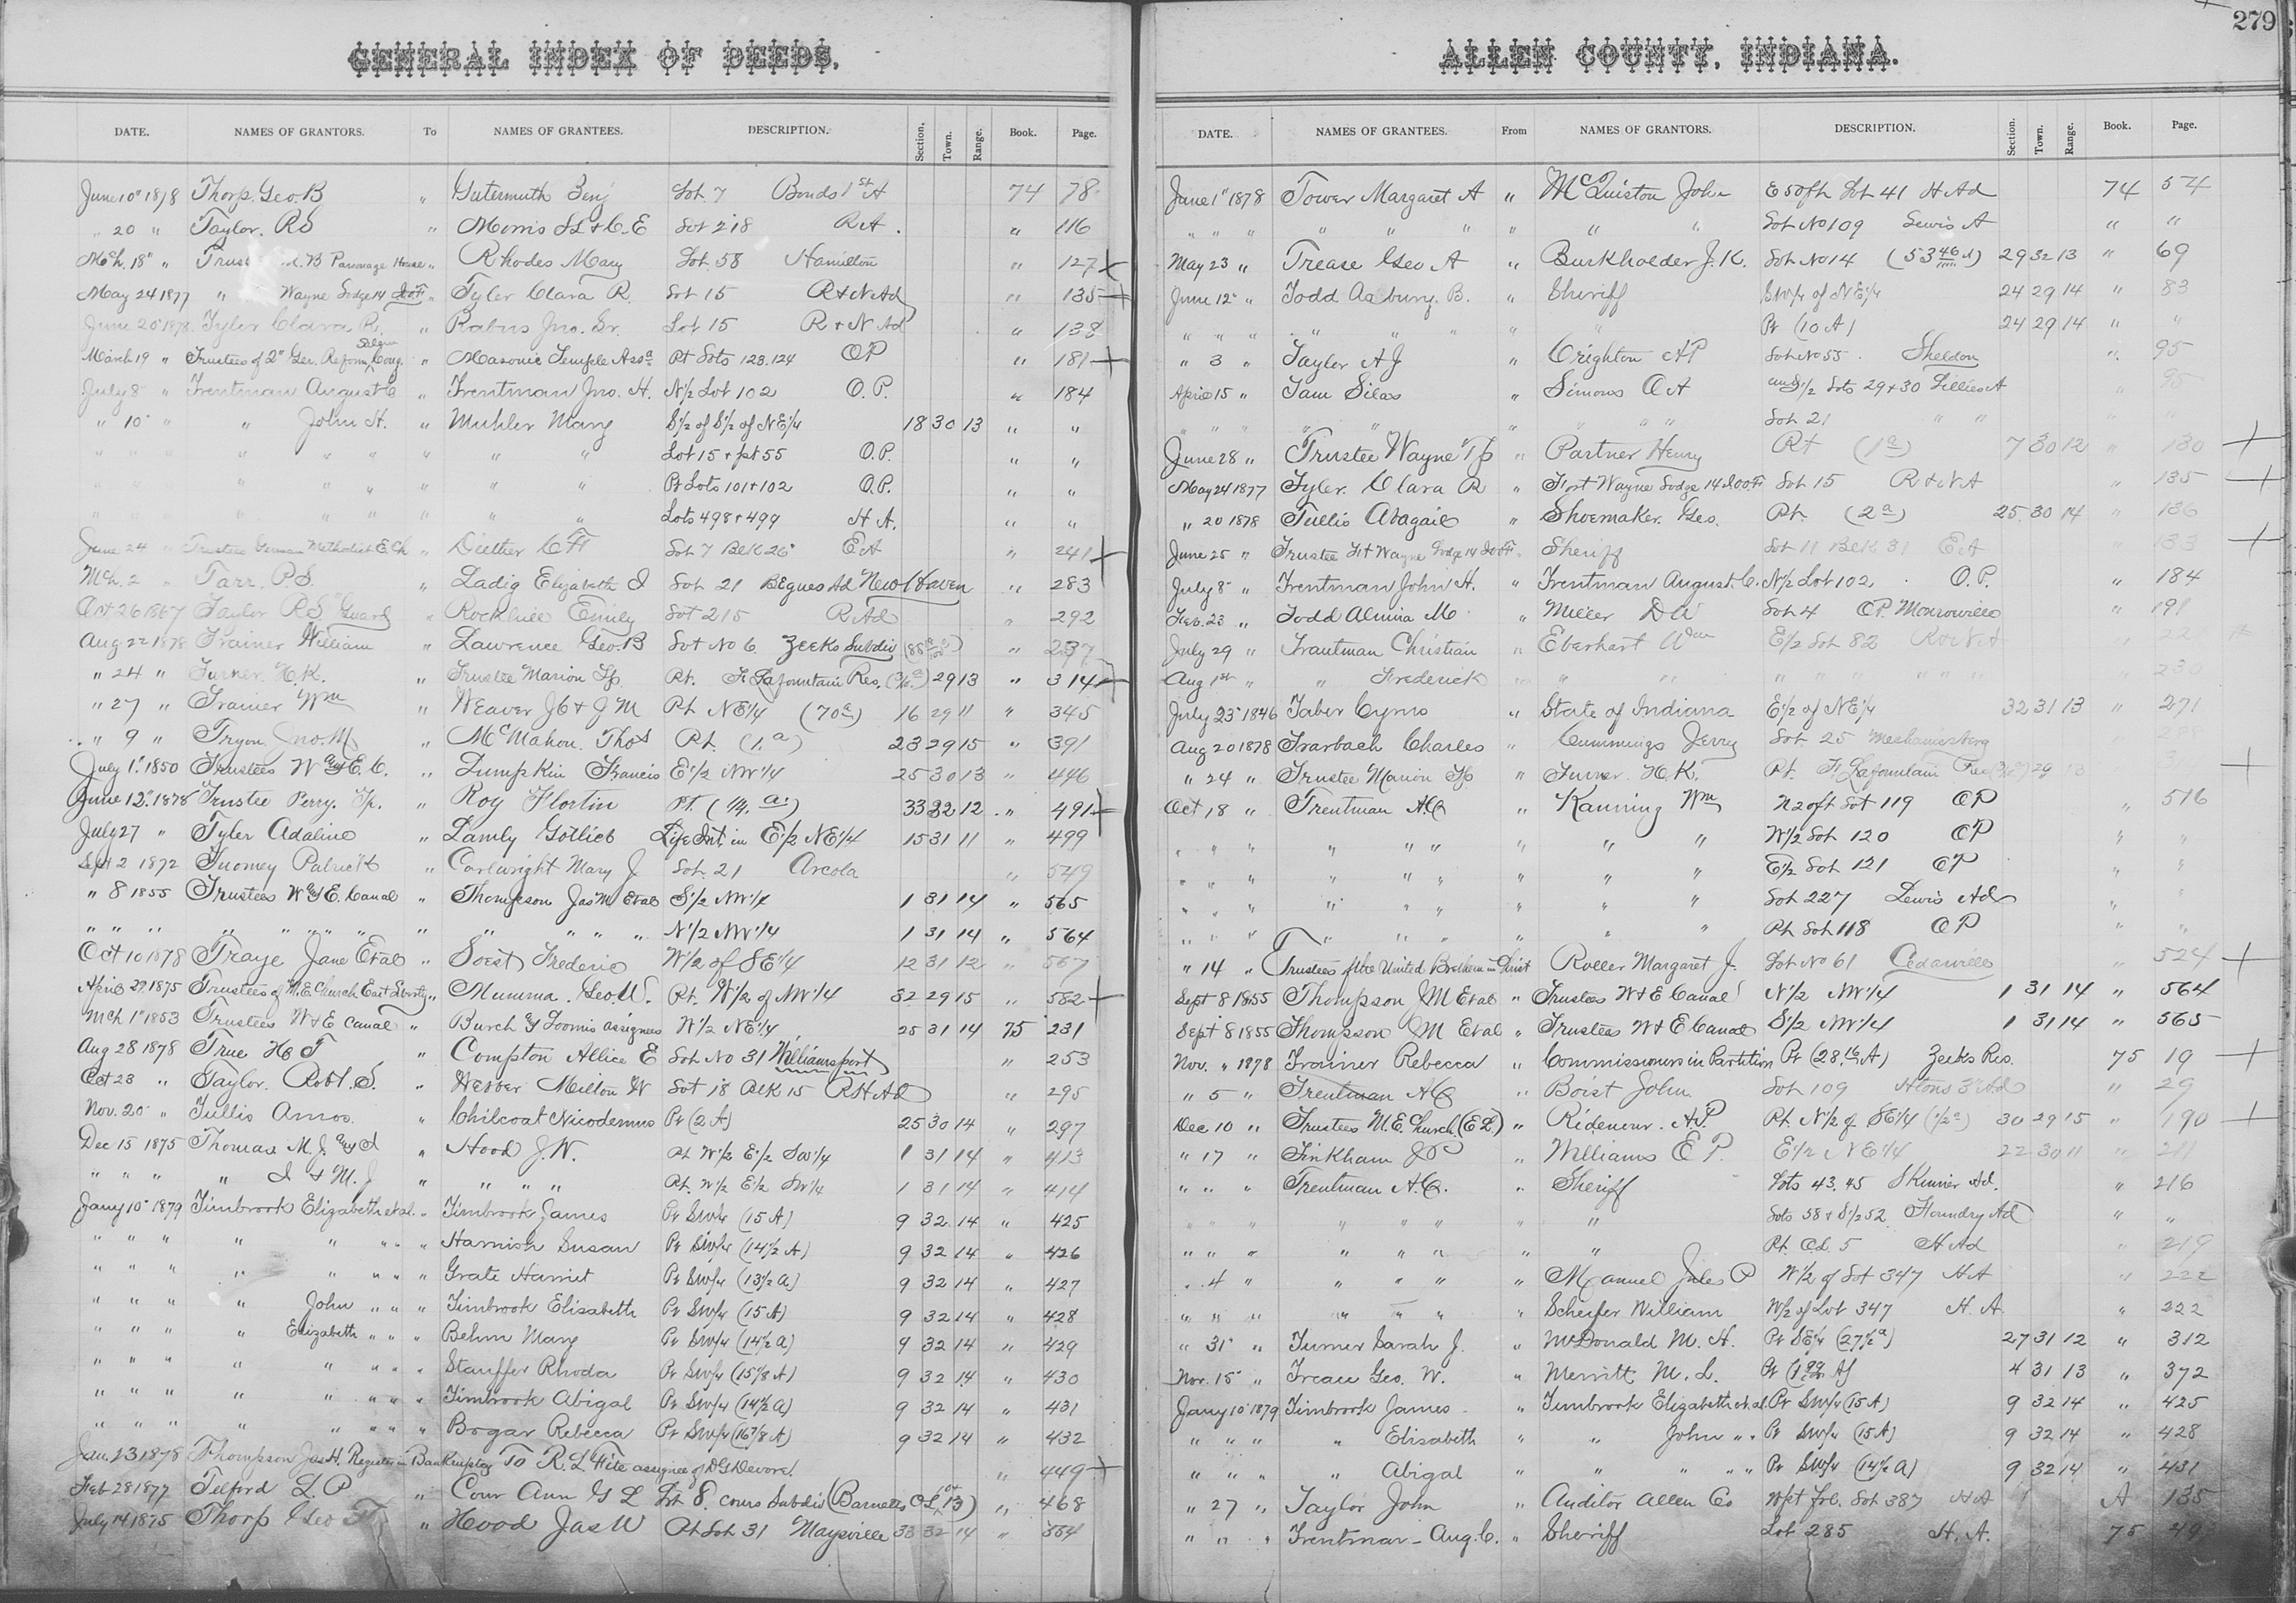 279
GENERAL INDEX OF DEEDS,
DATE. NAMES OF GRANTORS. To NAMES OF GRANTEES. DESCRIPTION. Section. Town. Range. Book. Page.
June 10" 1878 Thorp. Geo. B " Gutermuth Benj Lot 7 Bonds 1st A 74 78
" 20 " Taylor. R S " Morris S L & C. E Lot 218 R A. " 116
Mch. 18" " B Parsonage House " Rhodes Mary Lot. 58 Hamilton " 127 X
May 24 1877 " Wayne Lodge 14 I.o.o.F " Tyler Clara R. Lot 15 R & N Ad " 135 +
June 20" 1878 Tyler Clara R. " Rabus Jno. Sr. Lot 15 R & N Ad " 138
March 19 " Trustees of 2" Ger. Reform Salem Cong. " Masonic Temple Assa Pt Lots 123.124 OP " 181 +
July 8 " Trentman August C " Trentman Jno. H. N½ Lot 102 O.P. " 184
" 10" " " John H. " Muhler Mary S½ of S½ of NE¼ 18 30 13 " "
" " " " " " " " " Lot 15 & pt 55 O.P. " "
" " " " " " " " " Pt Lots 101 & 102 O.P. " "
" " " " " " " " " Lots 498 & 499 H A. " "
June 24 " Trustees German Methodist E. Ch " Diether C F Lot 7 Blk 26" E A " 241 +
Mch. 2 " Tarr. P S. " Ladig Elizabeth I Lot 21 Begues Ad New Haven " 283
Oct 26 1867 Taylor R S Guard " Rockhill Emily Lot 215 R Ad " 292
Aug 22 1878 Trainer William " Lawrence Geo. B Lot No 6 Zeeks Subdiv " 237
" 24 " Turner. H. K. " Trustee Marion Tp. Pt. F Lafountain Res. 29 13 " 314 +
" 27 " Trainer Wm " Weaver J C & J M Pt NE¼ (70a) 16 29 11 " 345
" 9 " Tryon Jno. M " McMahon. Thos Pt. (1.a) 23 29 15 " 391
July 1" 1850 Trustees W & E. C. " Lumpkin Francis E½ NW¼ 25 30 13 " 446
June 12" 1878 Trustee Perry. Tp. " Roy Flortin PT. (¼ a.) 33 32 12 " 491 +
July 27 " Tyler Adaline " Lamly Gotlieb Life Int. in E½ NE¼ 15 31 11 " 499
Sept 2 1872 Tuomey Patrick " Cartwright Mary J Lot. 21 Arcola " 549
" 8 1855 Trustees W & E. Canal " Thompson Jas M Et al S½ NW¼ 1 31 14 " 565
" " " " " " " " " " " " N½ NW¼ 1 31 14 " 564
Oct 10 1878 Traye Jane Et al " Soest Frederic W½ of SE¼ 12 31 12 " 567
April 29. 1875 Trustees of M. E. Church East Liberty " Mumma. Geo. W. Pt. W½ of NW¼ 32 29 15 " 582 +
Mch 1" 1853 Trustees W & E Canal " Burch & Loomis assignees W½ NE¼ 25 31 14 75 231
Aug 28 1878 True H F " Compton Allice E Lot No 31 Williamsport " 253
Oct 23 " Taylor. Robt. S. " Webber Milton W Lot 18 Blk 15 R H Ad " 295
Nov. 20 " Tullis Amos. " Chilcoat Nicodemus Pt (2 A) 25 30 14 " 297
Dec 15 1875 Thomas M. J. & I " Hood J. W. Pt W½ E½ SW¼ 1 31 14 " 413
" " " " I & M. J " " " " Pt. W½ E½ SW¼ 1 31 14 " 414
Jany 10" 1879 Timbrook Elizabeth et al. " Timbrook James Pt SW¼ (15 A) 9 32 14 " 425
" " " " " " " " Harnish Susan Pt SW¼ (14½ A) 9 32 14 " 426
" " " " " " " " Grate Harriet Pt SW¼ (13½ a) 9 32 14 " 427
" " " " John " " " Timbrook Elisabeth Pt SW¼ (15 A) 9 32 14 " 428
" " " " Elizabeth " " " Behm Mary Pt SW¼ (14½ a) 9 32 14 " 429
" " " " " " " " Stauffer Rhoda Pt SW¼ (15⅞ A) 9 32 14 " 430
" " " " " " " " Timbrook Abigal Pt SW¼ (14½ a) 9 32 14 " 431
" " " " " " " Bogar Rebecca Pt SW¼ (16⅞ A) 9 32 14 " 432
Jan. 23 1878 Thompson Jas H. Register in Bankruptcy To R. L Fite assignee of D G Devore. " 449 +
Feb 28 1877 Telford L. P " Cour Ann G L Lot 8. cours Subdiv (Barnetts OL 13) " 468
July 14 1875 Thorp Geo F " Hood Jas W Pt Lot 31 Maysville 33 32 14 " 554
ALLEN COUNTY, INDIANA.
DATE. NAMES OF GRANTEES. From NAMES OF GRANTORS. DESCRIPTION. Section. Town. Range. Book. Page.
June 1" 1878 Tower Margaret A " McQuiston John E 50 ft Lot 41 H Ad 74 54
" " " " " " " " Lot No 109 Lewis A " "
May 23 " Trease Geo A " Burkholder J. K. Lot No 14 29 32 13 " 69
June 12" " Todd Asbury. B. " Sheriff SW¼ of NE¼ 24 29 14 " 83
" " " " " " " " Pt (10 A) 24 29 14 " "
" 3 " Taylor A J " Crighton A P Lot No 55. Sheldon " 95
April 15 " Tam Silas " Simons O A und ½ Lots 29 & 30 Lillies A " 95
" " " " " " " " Lot 21 " " " "
June 28 " Trustee Wayne Tp " Partner Henry Pt (1a) 7 30 12 " 130 +
May 24 1877 Tyler. Clara R " Fort Wayne Lodge 14 I.o.o.F Lot 15 R & N A " 135 +
" 20 1878 Tullis Abagail " Shoemaker. Geo. Pt. (2a) 25 30 14 " 136
June 25 " Trustee Ft Wayne Lodge 14 IooF " Sheriff Lot 11 Blk 31 E A " 133 +
July 8 " Trentman John H. " Trentman August. C. N½ Lot 102 O.P. " 184
Feb. 23 " Todd Almira M " Miller D W Lot 4 O.P. Monroeville " 191
July 29 " Trautman Christian " Eberhart Wm E½ Lot 82 " 22
Aug 1st " " Frederick " " " " " " 230
July 23" 1846 Taber Cyrus " State of Indiana E½ of NE¼ 32 31 13 " 271
Aug 20 1878 Trarbach Charles " Cummings Jerry Lot 25 Mechanicsberg 288
" 24 " Trustee Marion Tp " Turner. H. K. Pt. F. Lafountain Res 29 13 +
Oct 18 " Trentman A C " Kanning Wm N 20 ft Lot 119 OP " 516
" " " " " " " " " W½ Lot 120 OP " "
" " " " " " " " " E½ Lot 121 OP " "
" " " " " " " " " Lot 227 Lewis Ad " "
" " " " " " " " " Pt Lot 118 OP " "
" 14 " Trustees of the United Brethern in Christ Roller Margaret J. Lot No 61 Cedarville " 524 +
Sept 8 1855 Thompson J M Et al " Trustees W & E Canal N½ NW¼ 1 31 14 " 564
Sept 8 1855 Thompson J M Et al " Trustees W & E Canal S½ NW¼ 1 31 14 " 565
Nov. " 1878 Trainer Rebecca " Commissioners in Partition Pt Zeeks Res. 75 19 +
" 5 " Trentman A C " Boist John Lot 109 " 29
Dec 10 " Trustees M. E. Church. (E L.) " Ridenour. A. P. Pt. N½ of SE¼ (½a) 30 29 15 " 190 +
" 17 " Tinkham J P " Williams E P. E½ NE¼ 22 30 11 " 211
" " " Trentman A. C. " Sheriff Lots 43. 45 Skinner Ad. " 216
" " " " " " " " Lots 58 & S½ 52 Foundry Ad " "
" " " " " " " " Pt. O L. 5 H Ad " 219
" 4 " " " " " Manuel Jules P W½ of Lot 347 H A " 222
" " " " " " " Scheifer William W½ of Lot 347 H. A. " 222
" 31" " Turner Sarah J. " McDonald M. H. Pt SE¼ (27½ a) 27 31 12 " 312
Nov. 15" " Treau Geo. W. " Merritt M. L. Pt 4 31 13 " 372
Jany 10" 1879 Timbrook James " Timbrook Elizabeth et al. Pt SW¼ (15 A) 9 32 14 " 425
" " " " Elisabeth " " John " " Pt SW¼ (15 A) 9 32 14 " 428
" " " " Abigal " " " " " Pt SW¼ (14½ A) 9 32 14 " 431
" 27 " Taylor John " Auditor Allen Co Wpt frl. Lot 387 H A A 135
" " " Trentman - Aug. C. " Sheriff Lot 285 H. A. 75 49